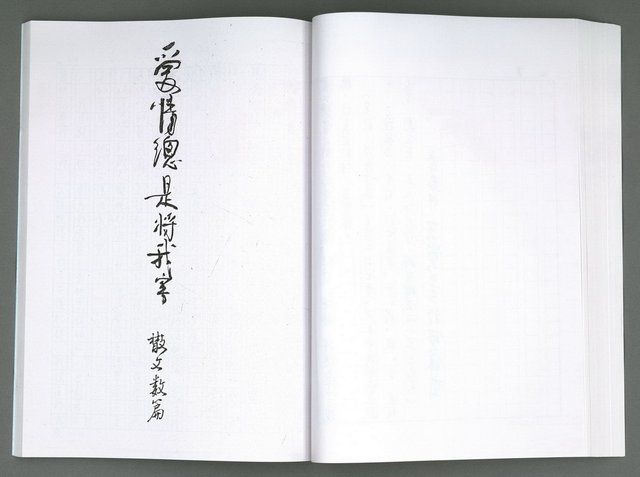 愛情總是將我
散文數篇